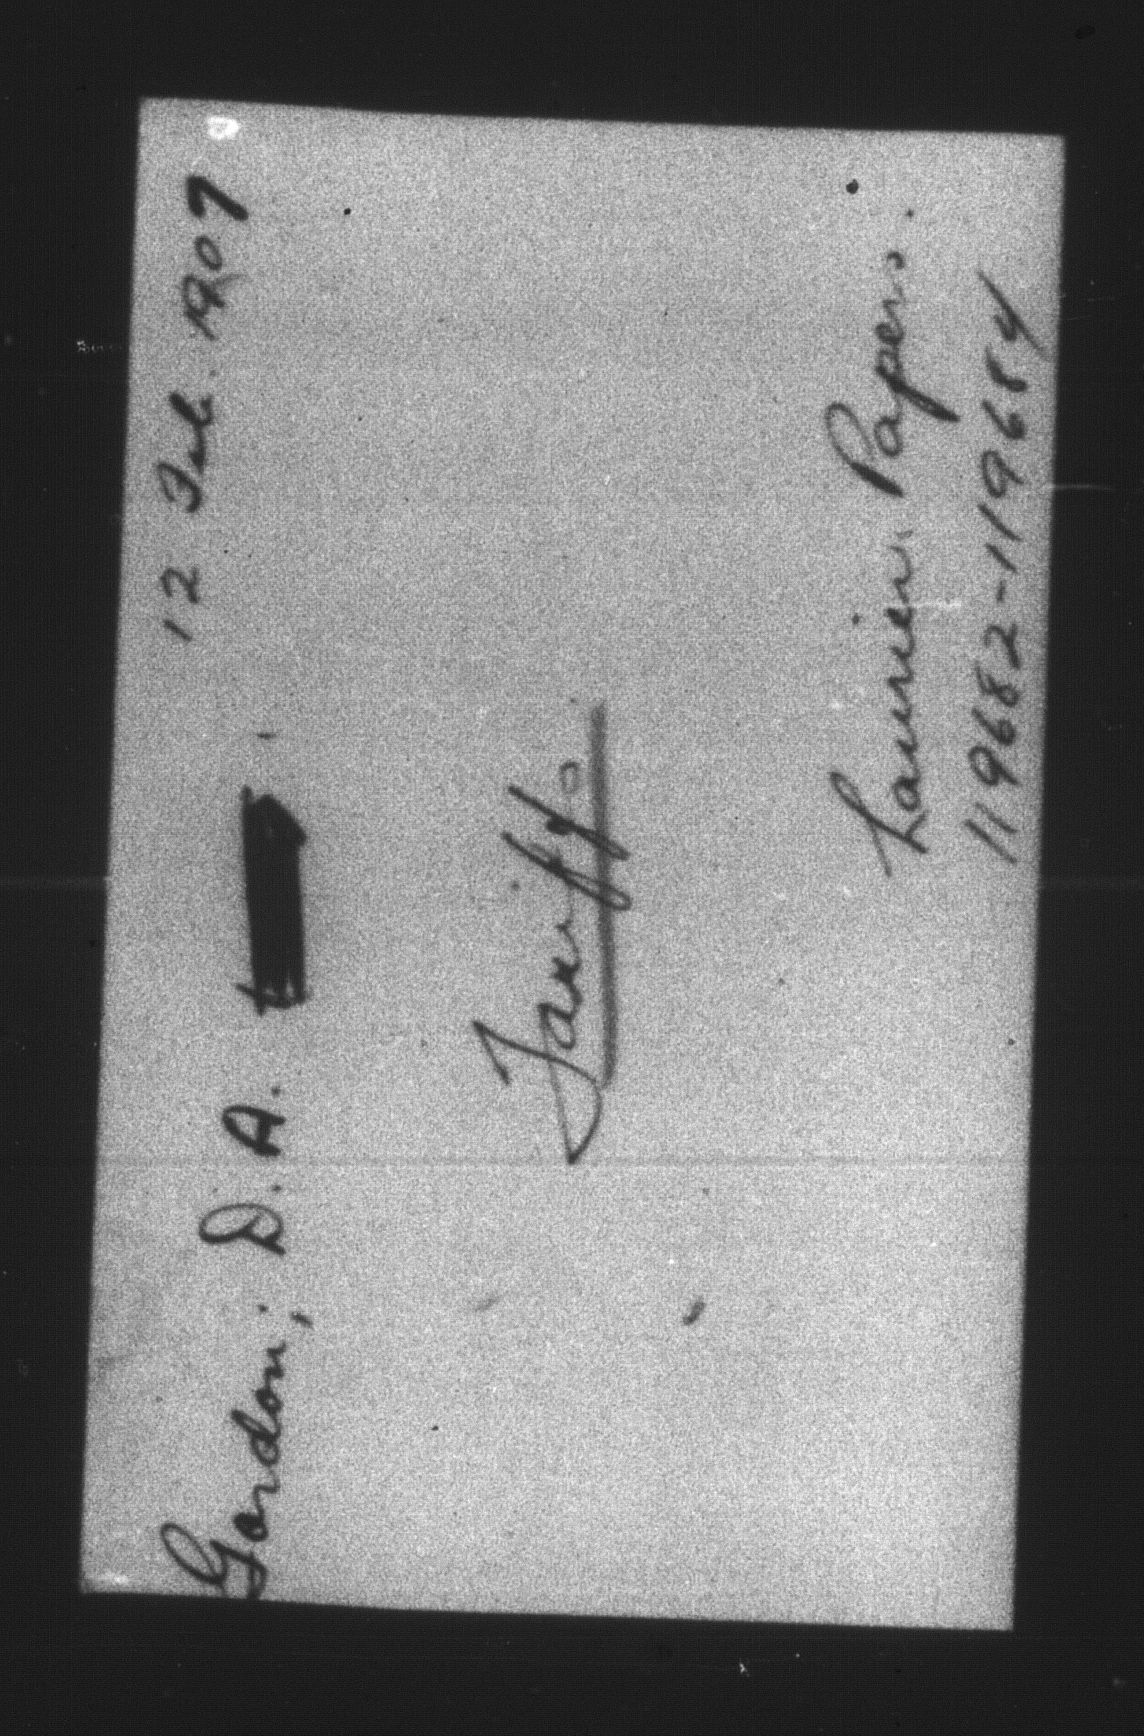 12 Feb. 1907
Gordon; D. A.
Tariff.
Laurier Papers.
119682-119684